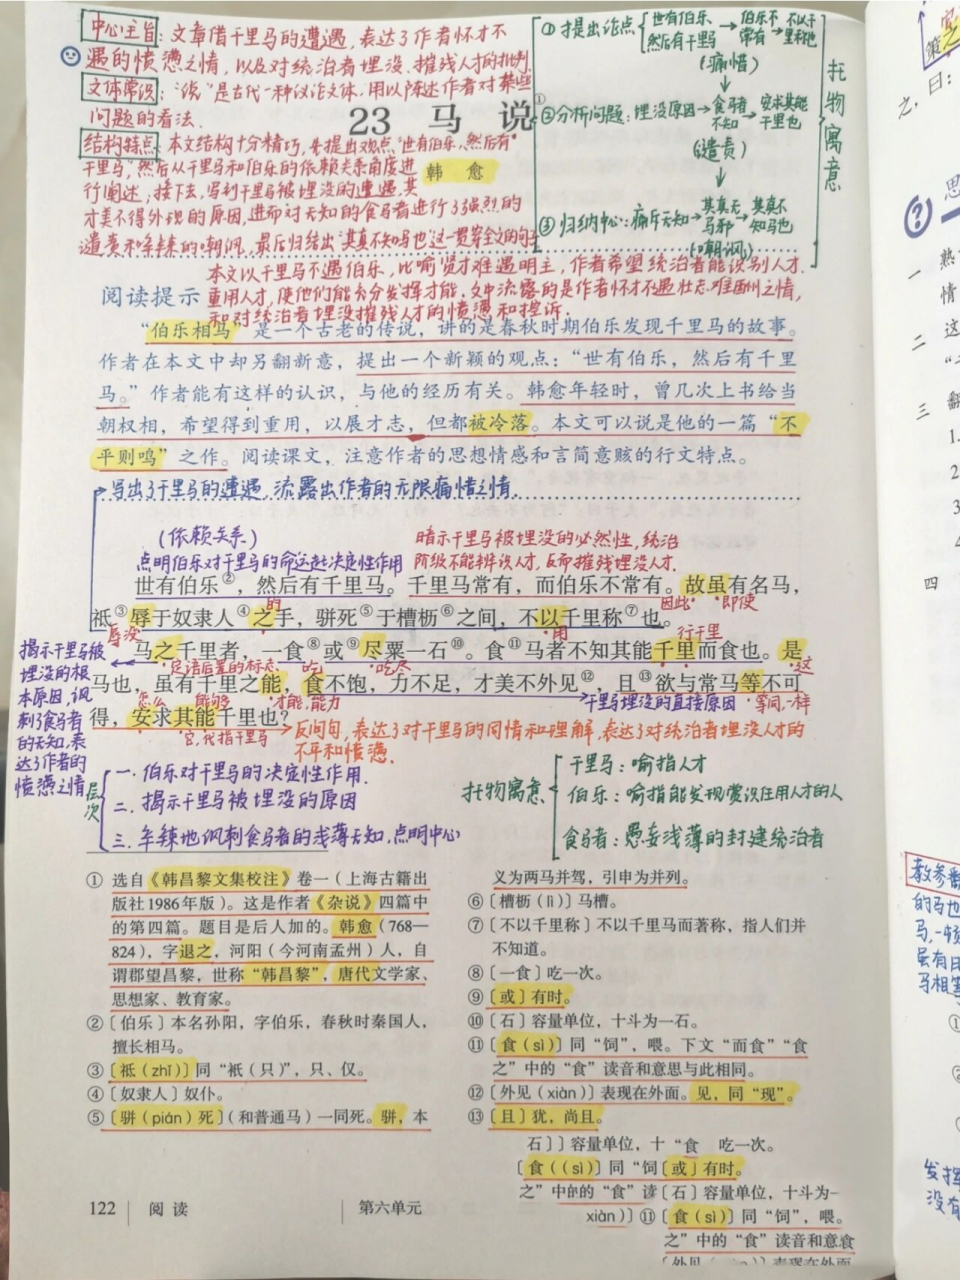 中心主旨：文章借千里马的遭遇，表达了作者怀才不
遇的愤懑之情，以及对统治者埋没、摧残人才的批判.
文体常识："说"是古代一种议论文体，用以陈述作者对某些
问题的看法.
23 马 说
韩 愈
结构特点：本文结构十分精巧，先提出观点"世有伯乐，然后有
千里马"，然后从千里马和伯乐的依赖关系角度进
行阐述；接下去，写到千里马被埋没的遭遇，其
才美不得外现的原因，进而对无知的食马者进行了强烈的
谴责和辛辣的嘲讽，最后归结出"其真不知马也"这一贯穿全文的句子
①提出论点
世有伯乐
然后有千里马
伯乐不
常有
不以千
里称也
(痛惜)
②分析问题：埋没原因
食马者
不知
安求其能
千里也
(谴责)
③归纳中心：痛斥无知
其真无
马邪
其真不
知马也
(嘲讽)
托物寓意
本文以千里马不遇伯乐，比喻贤才难遇明主，作者希望统治者能识别人才.
重用人才，使他们能充分发挥才能，文中流露的是作者怀才不遇壮志难酬之情，
和对统治者埋没摧残人才的愤懑和控诉.
阅读提示
"伯乐相马"是一个古老的传说，讲的是春秋时期伯乐发现千里马的故事。
作者在本文中却另翻新意，提出一个新颖的观点："世有伯乐，然后有千里
马。"作者能有这样的认识，与他的经历有关。韩愈年轻时，曾几次上书给当
朝权相，希望得到重用，以展才志，但都被冷落。本文可以说是他的一篇"不
平则鸣"之作。阅读课文，注意作者的思想情感和言简意赅的行文特点。
写出了千里马的遭遇，流露出作者的无限痛惜之情.
(依赖关系)
点明伯乐对千里马的命运起决定性作用
暗示千里马被埋没的必然性，统治
阶级不能辨识人才，反而摧残埋没人才.
世有伯乐②，然后有千里马。千里马常有，而伯乐不常有。故虽有名马，
的
因此 即使
祗③辱于奴隶人④之手，骈死⑤于槽枥⑥之间，不以千里称⑦也。
辱没
用
千里行
马之千里者，一食⑧或⑨尽粟一石⑩。食⑪马者不知其能千里而食也。是
定语后置的标志 吃 吃尽
这
马也，虽有千里之能，食不饱，力不足，才美不外见⑫，且⑬欲与常马等不可
怎么 能够 才能，能力
千里马埋没的直接原因 等同，一样
得，安求其能千里也？
它，代指千里马
反问句，表达了对千里马的同情和理解，表达了对统治者埋没人才的
不平和愤懑.
揭示千里马被
埋没的根
本原因，讽
刺了食马者
的无知，表
达了作者的
愤懑之情
层次
一. 伯乐对千里马的决定性作用.
二. 揭示千里马被埋没的原因
三. 辛辣地讽刺食马者的浅薄无知，点明中心
托物寓意
千里马：喻指人才
伯乐：喻指能发现赏识任用人才的人
食马者：愚妄浅薄的封建统治者
① 选自《韩昌黎文集校注》卷一（上海古籍出
版社1986年版）。这是作者《杂说》四篇中
的第四篇。题目是后人加的。韩愈（768—
824），字退之，河阳（今河南孟州）人，自
谓郡望昌黎，世称"韩昌黎"，唐代文学家、
思想家、教育家。
②〔伯乐〕本名孙阳，字伯乐，春秋时秦国人，
擅长相马。
③〔祗（zhǐ）〕同"衹（只）"，只、仅。
④〔奴隶人〕奴仆。
⑤〔骈（pián）死〕（和普通马）一同死。骈，本
义为两马并驾，引申为并列。
⑥〔槽枥（lì）〕马槽。
⑦〔不以千里称〕不以千里马而著称，指人们并
不知道。
⑧〔一食〕吃一次。
⑨〔或〕有时。
⑩〔石〕容量单位，十斗为一石。
⑪〔食（sì）〕同"饲"，喂。下文"而食""食
之"中的"食"读音和意思与此相同。
⑫〔外见（xiàn）〕表现在外面。见，同"现"。
⑬〔且〕犹，尚且。
石〕〕容量单位，十"食 吃一次。
〔食（(sì)〕同"饲〔或〕有时。
之"中的"食"读〔石〕容量单位，十斗为一
xiàn）〕⑪〔食（sì）〕同"饲"，喂。
之"中的"食"读音和意食
122 阅 读
第六单元
之，曰：
思
一 热
情
二 这
三 翻
1.
2
3
4
四
教参翻
的马也
马，一
虽有日
马相等
发挥
没有